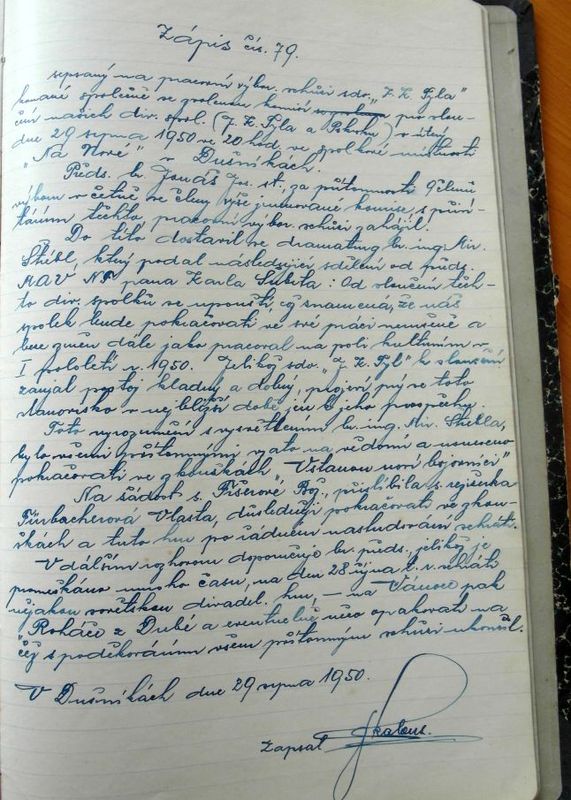 Zápis čís. 79.
sepsaný na pracovní výbor. schůzi sdr. "J. K. Tyla"
konané společně se členem komisí pro slou-
čení našich div. spol. (J. K. Tyla a Pokroku) v úterý
dne 29 srpna 1950 ve 20 hod. ve spolkové místnosti
"Na Nové" v Dušníkách.
Předs. br. Jonáš Jos. st. za přítomnosti 9 členů
výboru včetně se členy výše jmenované komise, s přiví-
táním těchto, pracovní výbor. schůzi zahájil.
Do této dostavil se dramaturg br. ing. Mir.
Štěbl, který podal následující sdělení od předs.
MAV NF pana Karla Subita: Od sloučení těch-
to div. spolků se upouští, což znamená, že náš
spolek bude pokračovati ve své práci nerušeně a
bere směr dále jako pracoval na poli kulturním v
I pololetí r. 1950. Jelikož sdr. "J. K. Tyl" k sloučení
zaujal postoj kladný a dobrý, projeví prý se toto
stanovisko v nejbližší době jen k jeho prospěchu.
Toto vyrozumění s vysvětlením br. ing. Mir. Štěbla,
bylo všemi přítomnými vzato na vědomí a usneseno
pokračovati ve zkouškách "Vstanou noví bojovníci"
Na žádost s. Fišerové Bož., přislíbila s. režisérka
Fürbacherová Vlasta, důsledně pokračovati ve zkou-
škách a tuto hru po řádném nastudování sehráti.
V dalším rozhovoru doporučuje br. předs., jelikož je
promeškáno mnoho času, na den 28 října t. r. sehráti
nějakou sovětskou divadel. hru, – na Vánoce pak
"Roháče z Dubé a eventuelně něco opakovati na
čež s poděkováním všem přítomným schůzi ukončil.
V Dušníkách dne 29 srpna 1950.
Zapsal